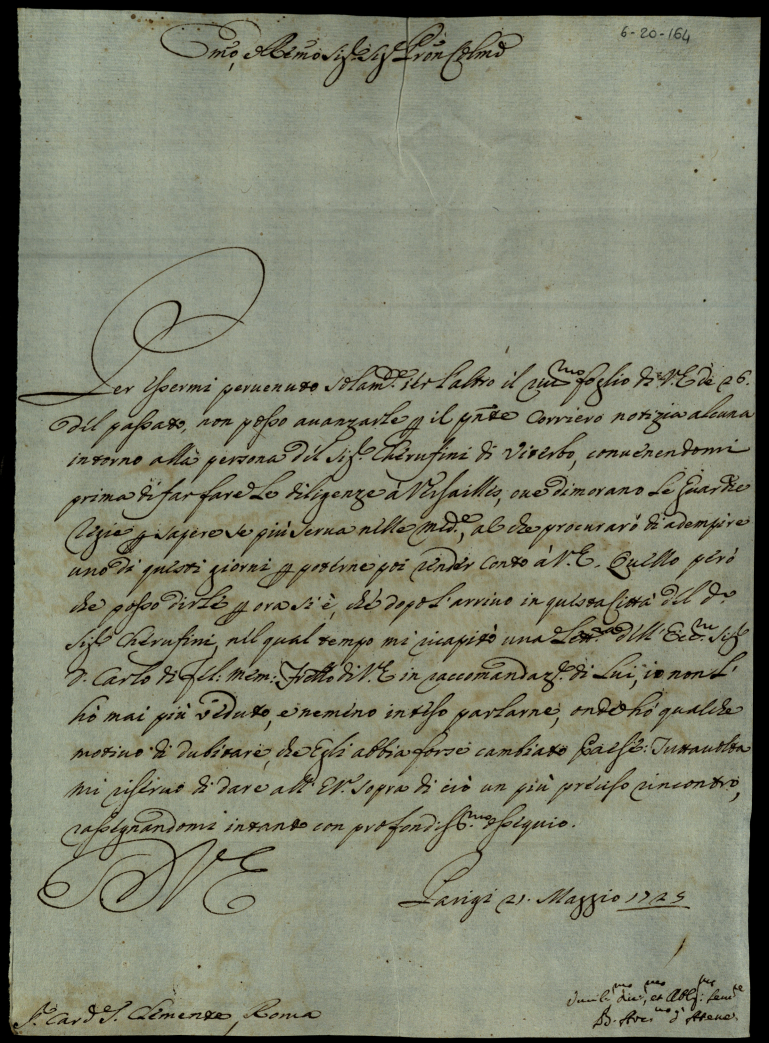 6-20-164
Emo, e Rmo Sigr. Sigr. Prōn Colmo
Per essermi pervenuto solamte. ier l'altro il rivmo foglio di V.E. de 26.
del passato, non posso avanzarle p il pñte Corriero notizia alcuna
intorno alla persona del Sigr. Cherufini di Viterbo, convenendomi
prima di far fare le diligenze à Versaillis, ove dimorano le Guardie
Regie p sapere se più serva nelle medme., al che procurarò di adempire
uno di questi giorni p poterne poi render conto à V.E. Quello però
che posso dirle p ora si è, che dopo l'arrivo in questa Città del do.
Sigr. Cherufini, nel qual tempo mi ricapitò una Lettra. dell' Eccmo. Sigr.
D. Carlo di fel: mem: Frello di V.E. in raccomandazne. di Lui, io non l'
hò mai più veduto, e nemeno inteso parlarne, onde hò qualche
motivo di dubitare, che Egli abbia forse cambiato Paese: Tuttavolta
mi riservo di dare all' E.V. sopra di ciò un più preciso rincontro,
rassegnandomi intanto con profondissmo. ossequio.
D V E
Parigi 21. Maggio 1725
Sr. Card. S. Clemente, Roma
Humilmo, divmo, et Obblgmo: Servre
B. Arcivo d'Atene